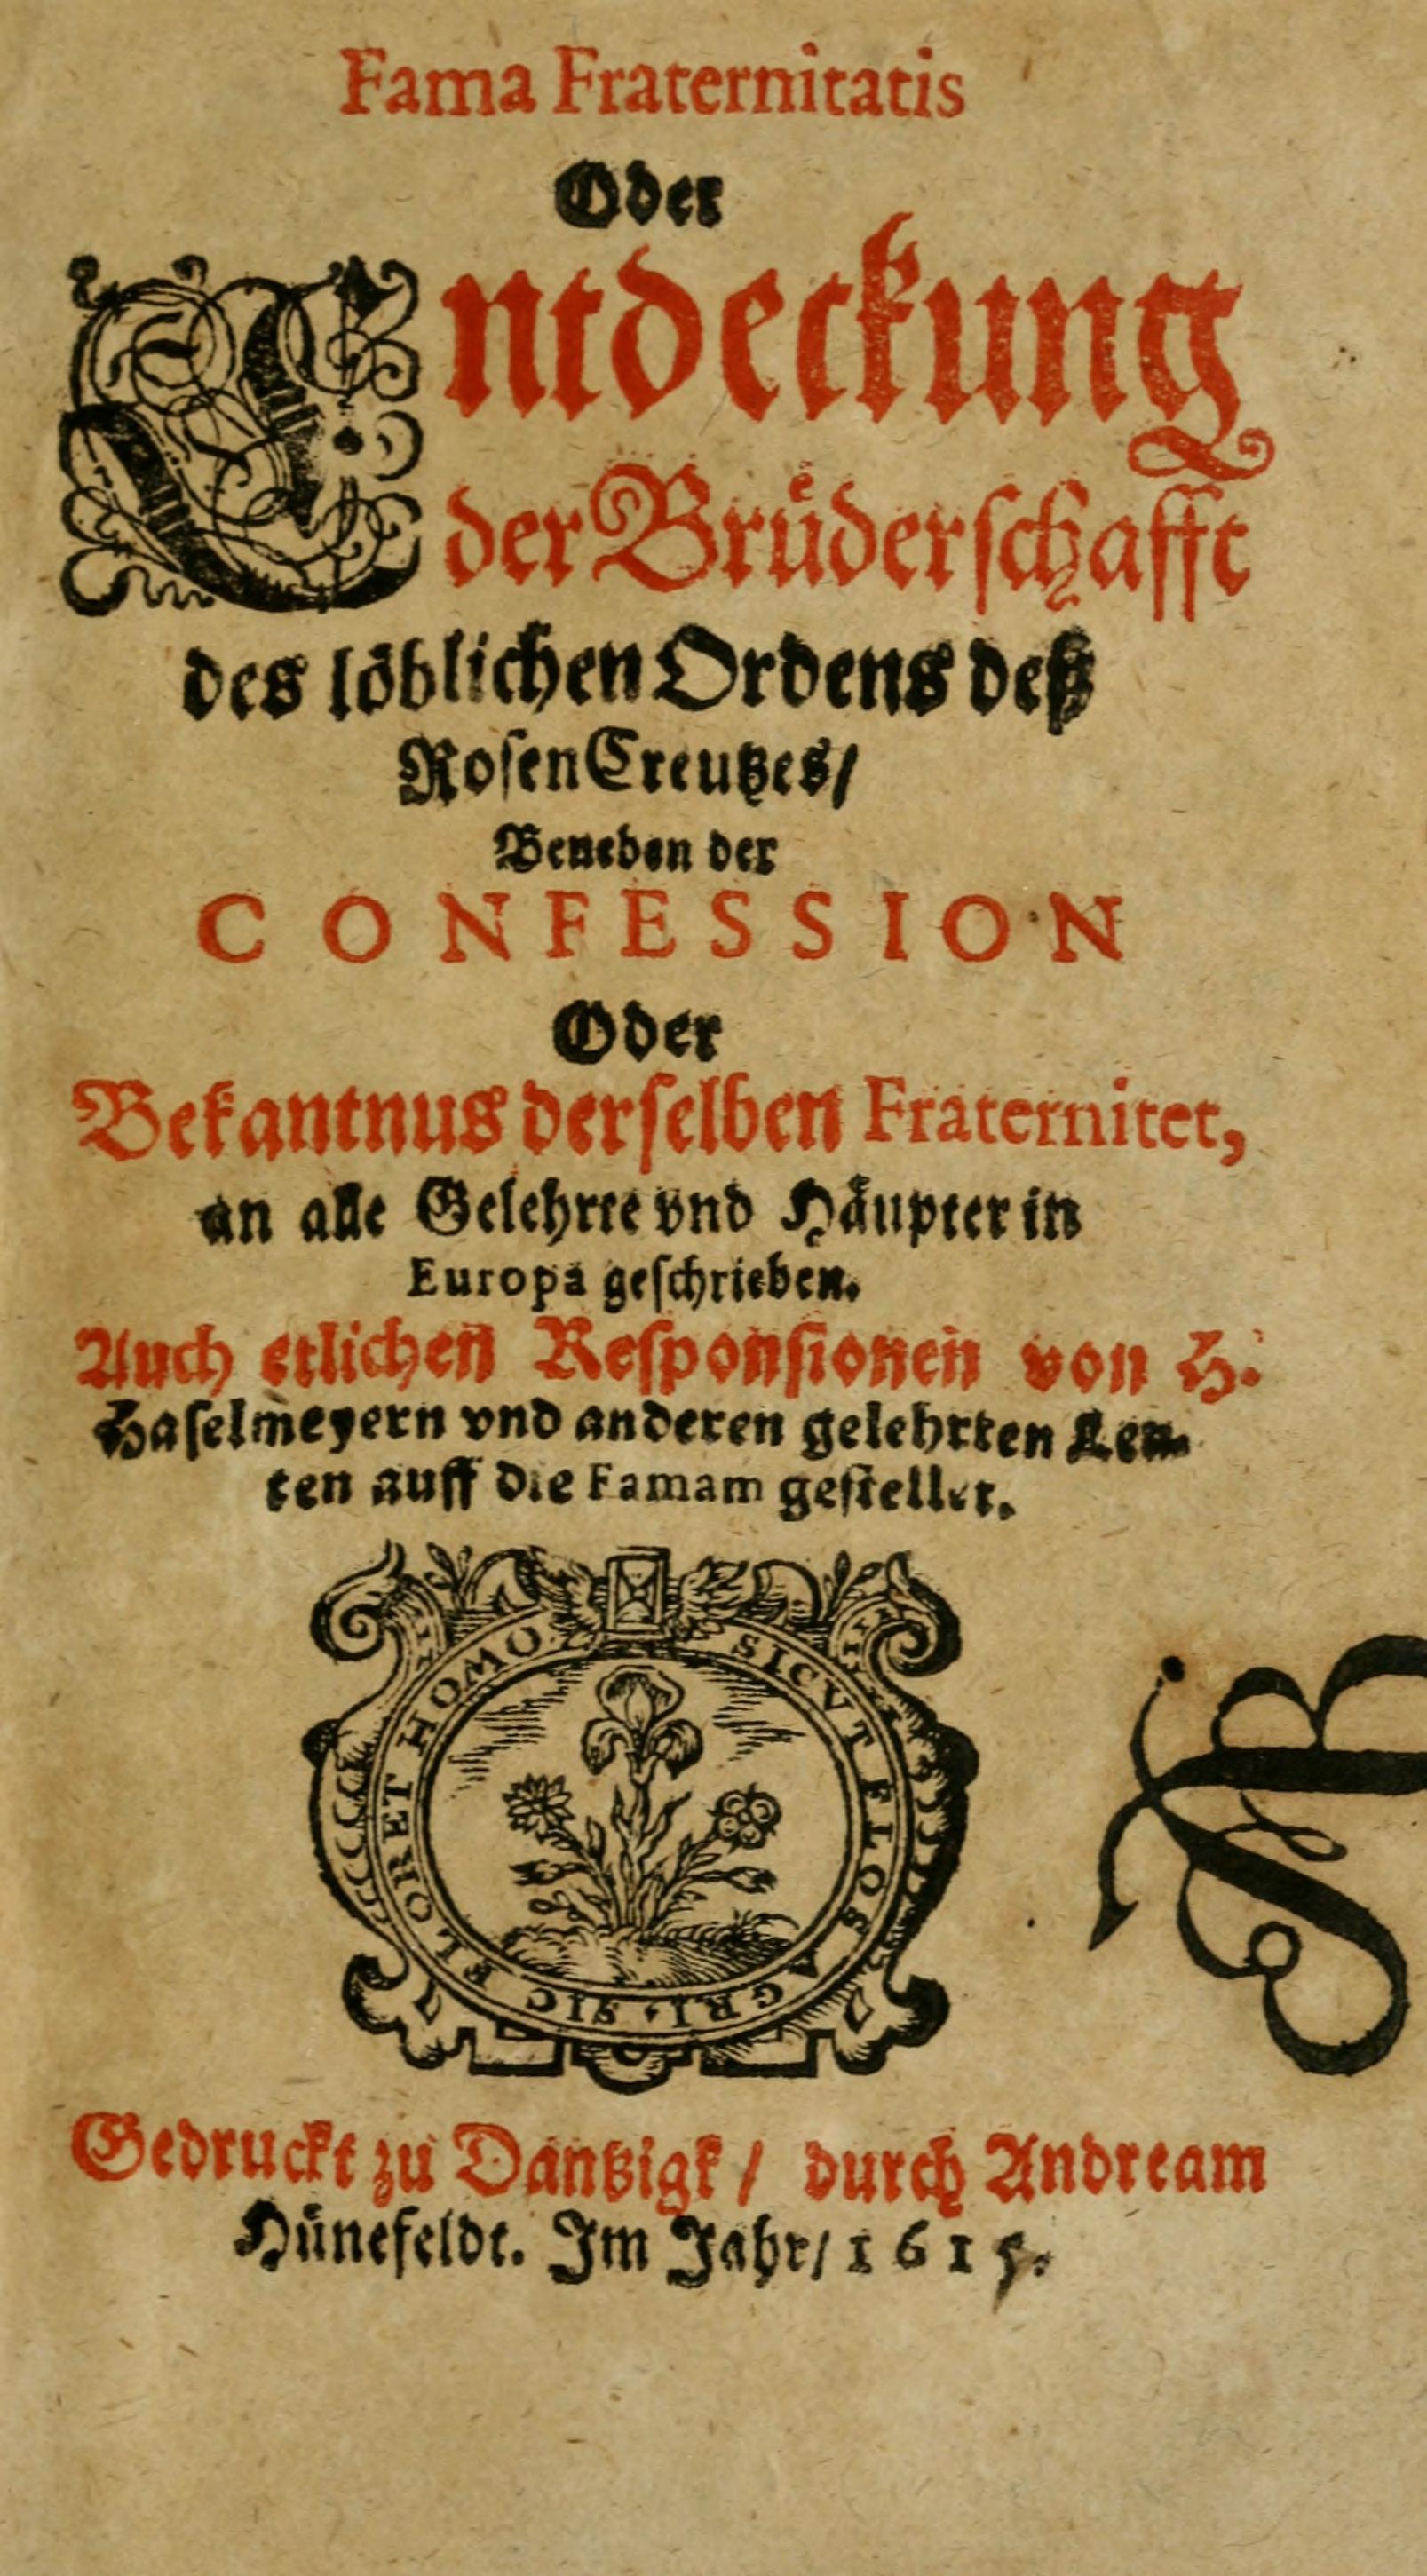 Fama Fraternitatis
Oder
Entdeckung
der Brüderschafft
des löblichen Ordens deß
RosenCreutzes/
Beneben der
CONFESSION
Oder
Bekantnus derselben Fraternitet,
an alle Gelehrte vnd Häupter in
Europa geschrieben.
Auch etlichen Responsionen von H.
Haselmeyern vnd anderen gelehrten Leu-
ten auff die Famam gestellet.
HOMO SICVT FLOS AGRI, SIC FLORET
Gedruckt zu Dantzigk/ durch Andream
Hünefeldt. Im Jahr/ 1615.